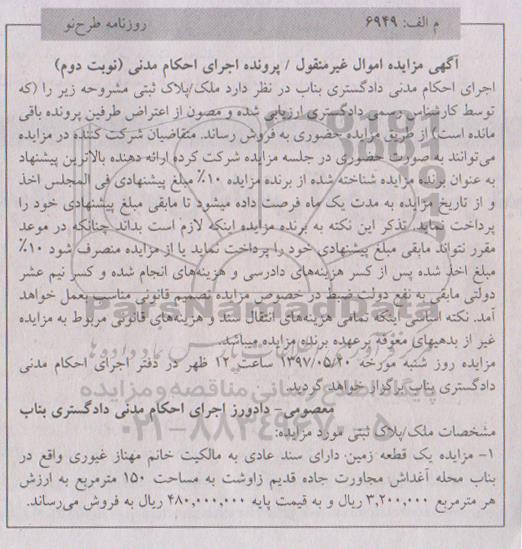 م الف: ۶۹۴۹
روزنامه طرح‌نو
آگهی مزایده اموال غیرمنقول / پرونده اجرای احکام مدنی (نوبت دوم)
اجرای احکام مدنی دادگستری بناب در نظر دارد ملک/پلاک ثبتی مشروحه زیر را (که
توسط کارشناس رسمی دادگستری ارزیابی شده و مصون از اعتراض طرفین پرونده باقی
مانده است) از طریق مزایده حضوری به فروش رساند. متقاضیان شرکت کننده در مزایده
می‌توانند به صورت حضوری در جلسه مزایده شرکت کرده ارائه دهنده بالاترین پیشنهاد
به عنوان برنده مزایده شناخته شده از برنده مزایده ۱۰٪ مبلغ پیشنهادی فی المجلس اخذ
و از تاریخ مزایده به مدت یک ماه فرصت داده میشود تا مابقی مبلغ پیشنهادی خود را
پرداخت نماید. تذکر این نکته به برنده مزایده اینکه لازم است بداند چنانکه در موعد
مقرر نتواند مابقی مبلغ پیشنهادی خود را پرداخت نماید یا از مزایده منصرف شود ۱۰٪
مبلغ اخذ شده پس از کسر هزینه‌های دادرسی و هزینه‌های انجام شده و کسر نیم عشر
دولتی مابقی به نفع دولت ضبط در خصوص مزایده تصمیم قانونی مناسب بعمل خواهد
آمد. نکته اساسی اینکه تمامی هزینه‌های انتقال سند و هزینه‌های قانونی مربوط به مزایده
غیر از بدهیهای معوقه برعهده برنده مزایده میباشد.
مزایده روز شنبه مورخه ۱۳۹۷/۰۵/۲۰ ساعت ۱۲ ظهر در دفتر اجرای احکام مدنی
دادگستری بناب برگزار خواهد گردید.
معصومی- دادورز اجرای احکام مدنی دادگستری بناب
مشخصات ملک/پلاک ثبتی مورد مزایده:
۱- مزایده یک قطعه زمین دارای سند عادی به مالکیت خانم مهناز غیوری واقع در
بناب محله آغداش مجاورت جاده قدیم زاوشت به مساحت ۱۵۰ مترمربع به ارزش
هر مترمربع ۳,۲۰۰,۰۰۰ ریال و به قیمت پایه ۴۸۰,۰۰۰,۰۰۰ ریال به فروش می‌رساند.
ParsNamadData
پایگاه اطلاع رسانی مناقصه و مزایده
۰۲۱-۸۸۳۴۹۶۷۰-۵